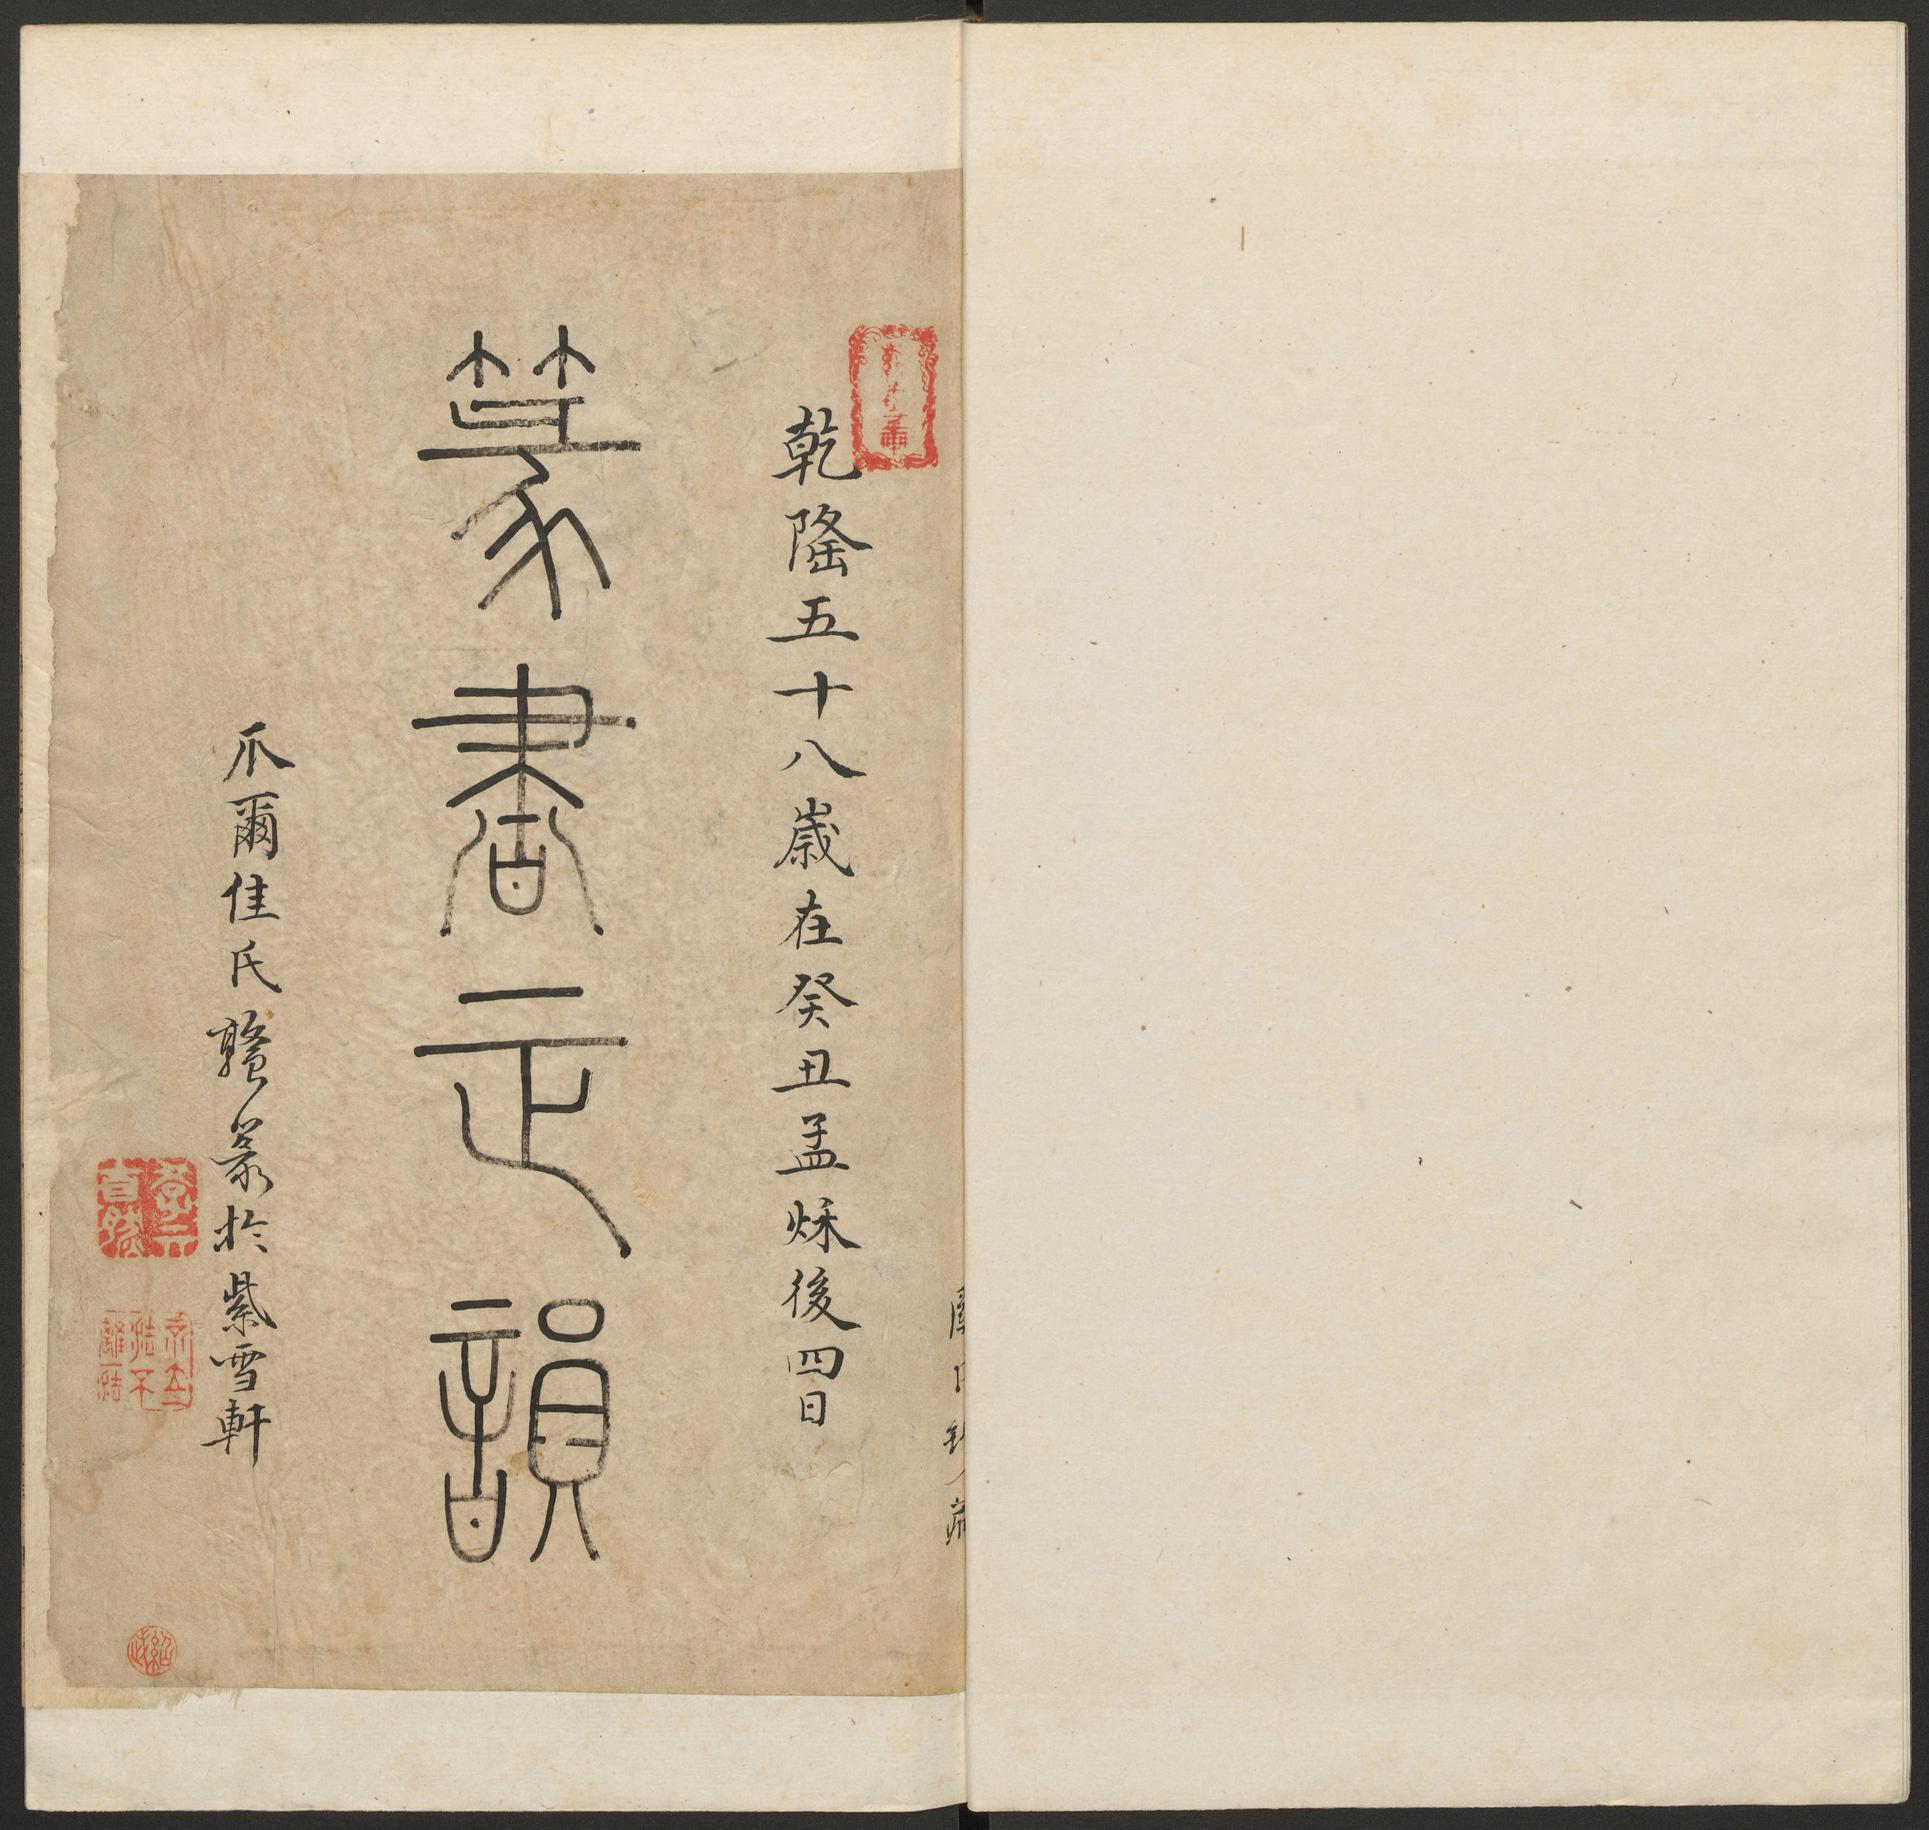 乾隆五十八歲在癸丑孟秌後四日
篆書正韻
爪爾佳氏䜭篆於紫雪軒